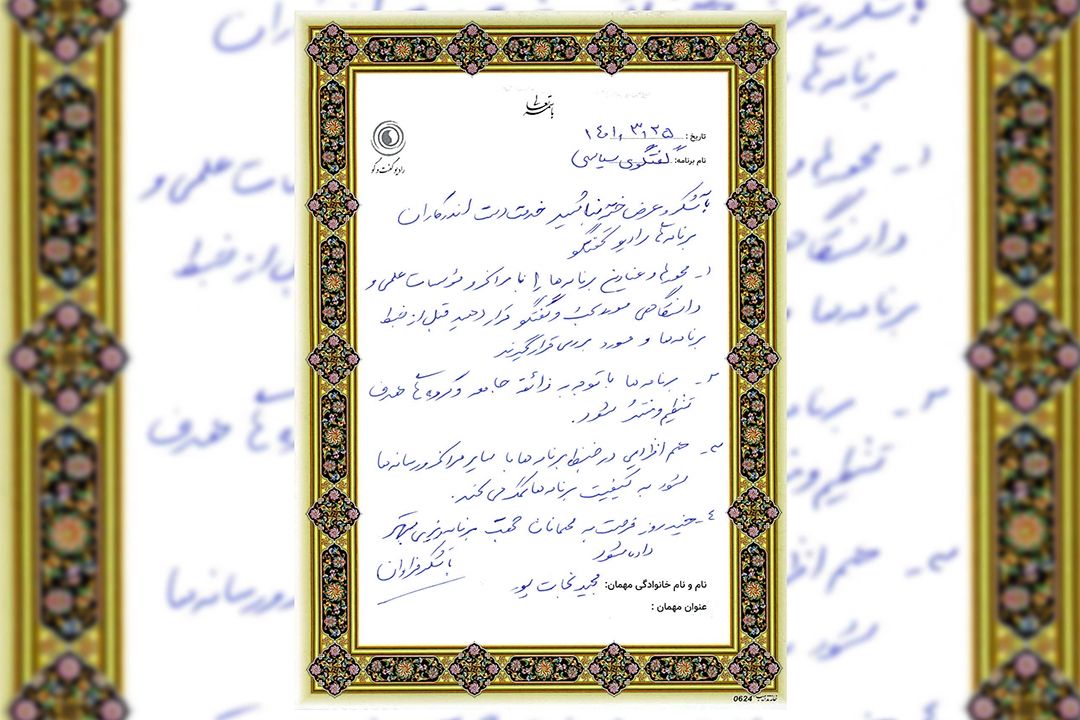 باسمه تعالی
رادیو گفت و گو
تاریخ: ۱۴۰۱٫۳٫۲۵
نام برنامه: گفتگوی سیاسی
با تشکر و عرض خسته نباشید خدمت دست اندرکاران
برنامه‌های رادیو گفتگو
۱- محورها و عناوین برنامه‌ها را با مراکز و مؤسسات علمی و
دانشگاهی مورد بحث و گفتگو قرار دهید قبل از ضبط
برنامه‌ها و مورد بررسی قرار گیرند
۲- برنامه‌ها با توجه به ذائقه جامعه و گروه‌های هدف
تنظیم و منتشر شود.
۳- هم افزایی در ضبط برنامه‌ها با سایر مراکز و رسانه‌ها
شود به کیفیت برنامه‌ها کمک می کند.
۴- چند روز فرصت به مهمانان جهت برنامه‌ریزی بهتر
داده شود
با تشکر فراوان
نام و نام خانوادگی مهمان: مجید نجات پور
عنوان مهمان :
0624